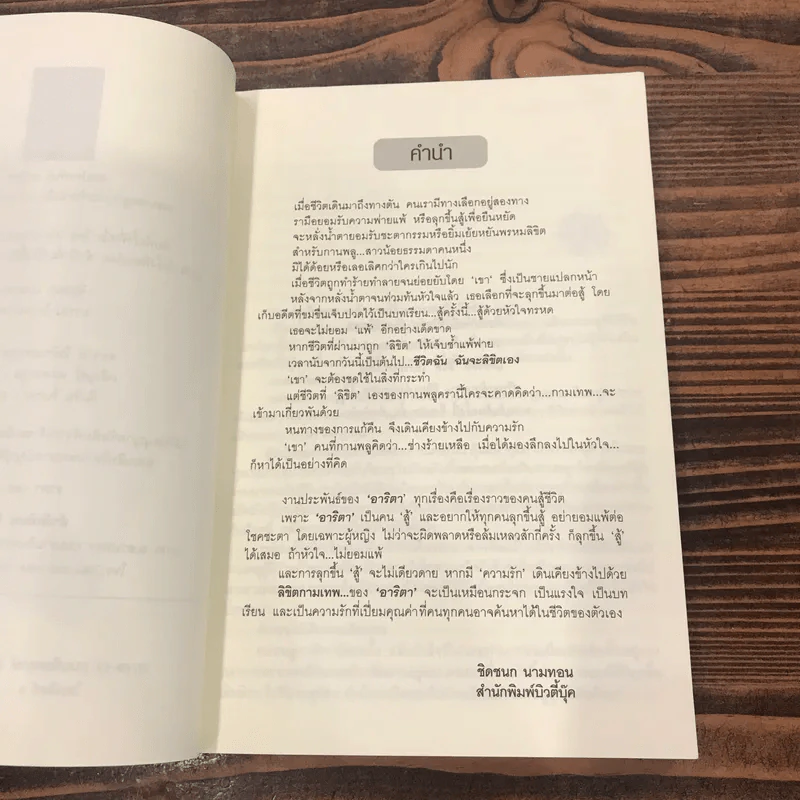 คำนำ
เมื่อชีวิตเดินมาถึงทางตัน คนเรามีทางเลือกอยู่สองทาง
รามือยอมรับความพ่ายแพ้ หรือลุกขึ้นสู้เพื่อยืนหยัด
จะหลั่งน้ำตายอมรับชะตากรรมหรือยิ้มเย้ยหยันพรหมลิขิต
สำหรับกานพลู...สาวน้อยธรรมดาคนหนึ่ง
มิได้ด้อยหรือเลอเลิศกว่าใครเกินไปนัก
เมื่อชีวิตถูกทำร้ายทำลายจนย่อยยับโดย ‘เขา’ ซึ่งเป็นชายแปลกหน้า
หลังจากหลั่งน้ำตาจนท่วมท้นหัวใจแล้ว เธอเลือกที่จะลุกขึ้นมาต่อสู้ โดย
เก็บอดีตที่ขมขื่นเจ็บปวดไว้เป็นบทเรียน...สู้ครั้งนี้...สู้ด้วยหัวใจทรหด
เธอจะไม่ยอม ‘แพ้’ อีกอย่างเด็ดขาด
หากชีวิตที่ผ่านมาถูก ‘ลิขิต’ ให้เจ็บช้ำแพ้พ่าย
เวลานับจากวันนี้เป็นต้นไป...ชีวิตฉัน ฉันจะลิขิตเอง
‘เขา’ จะต้องชดใช้ในสิ่งที่กระทำ
แต่ชีวิตที่ ‘ลิขิต’ เองของกานพลูครานี้ใครจะคาดคิดว่า...กามเทพ...จะ
เข้ามาเกี่ยวพันด้วย
หนทางของการแก้คืน จึงเดินเคียงข้างไปกับความรัก
‘เขา’ คนที่กานพลูคิดว่า...ช่างร้ายเหลือ เมื่อได้มองลึกลงไปในหัวใจ...
ก็หาได้เป็นอย่างที่คิด
งานประพันธ์ของ ‘อาริตา’ ทุกเรื่องคือเรื่องราวของคนสู้ชีวิต
เพราะ ‘อาริตา’ เป็นคน ‘สู้’ และอยากให้ทุกคนลุกขึ้นสู้ อย่ายอมแพ้ต่อ
โชคชะตา โดยเฉพาะผู้หญิง ไม่ว่าจะผิดพลาดหรือล้มเหลวสักกี่ครั้ง ก็ลุกขึ้น ‘สู้’
ได้เสมอ ถ้าหัวใจ...ไม่ยอมแพ้
และการลุกขึ้น ‘สู้’ จะไม่เดียวดาย หากมี ‘ความรัก’ เดินเคียงข้างไปด้วย
ลิขิตกามเทพ...ของ ‘อาริตา’ จะเป็นเหมือนกระจก เป็นแรงใจ เป็นบท
เรียน และเป็นความรักที่เปี่ยมคุณค่าที่คนทุกคนอาจค้นหาได้ในชีวิตของตัวเอง
ชิดชนก นามทอน
สำนักพิมพ์บิวตี้บุ๊ค